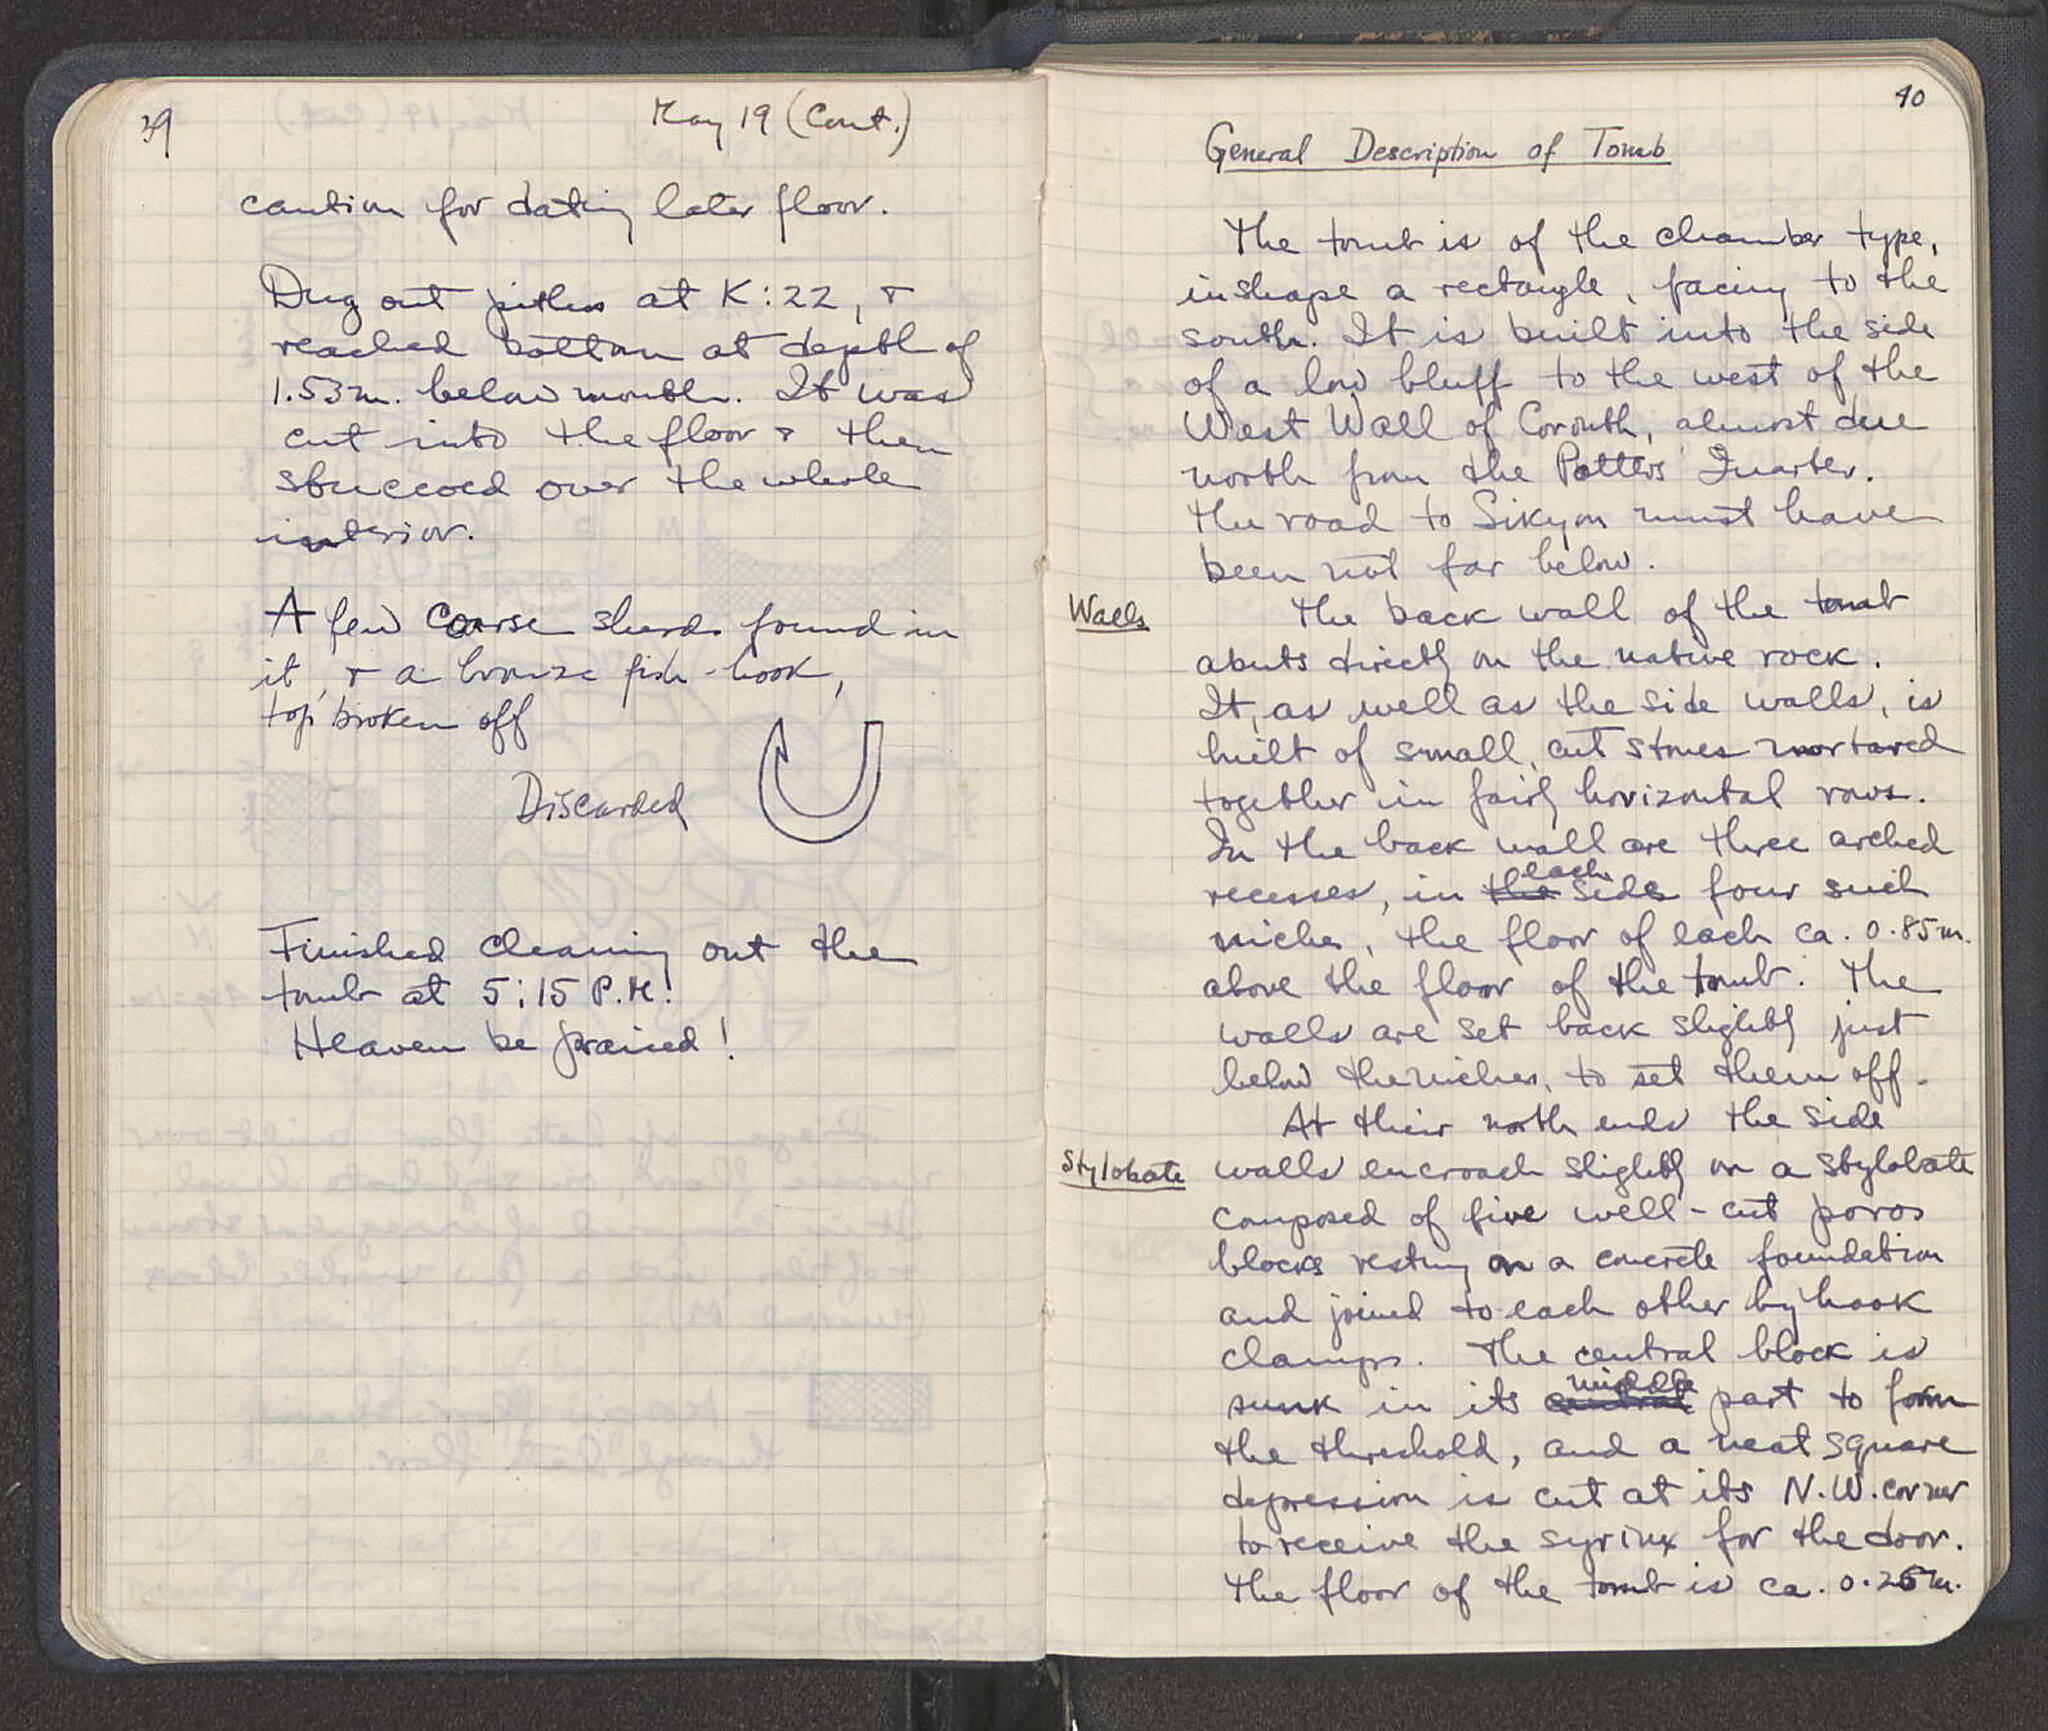 39
May 19 (Cont.)
caution for dating later floor.
Dug out pithos at K:22, +
reached bottom at depth of
1.53m. below mouth. It was
cut into the floor + then
stuccoed over the whole
interior.
A few coarse sherds found in
it, + a bronze fish-hook,
top broken off
Discarded
Finished cleaning out the
tomb at 5:15 P.M.
Heaven be praised!
40
General Description of Tomb
The tomb is of the chamber type,
in shape a rectangle, facing to the
south. It is built into the side
of a low bluff to the west of the
West Wall of Corinth, almost due
north from the Potters' Quarter.
The road to Sikyon must have
been not far below.
Walls
The back wall of the tomb
abuts directly on the native rock.
It, as well as the side walls, is
built of small, cut stones mortared
together in fairly horizontal rows.
In the back wall are three arched
recesses, in the each side four such
niches, the floor of each ca. 0.85m.
above the floor of the tomb. The
walls are set back slightly just
below the niches, to set them off.
At their north ends the side
Stylobate
walls encroach slightly on a stylobate
composed of five well-cut poros
blocks resting on a concrete foundation
and joined to each other by hook
clamps. The central block is
sunk in its central middle part to form
the threshold, and a neat square
depression is cut at its N.W. corner
to receive the syrinx for the door.
The floor of the tomb is ca. 0.25m.